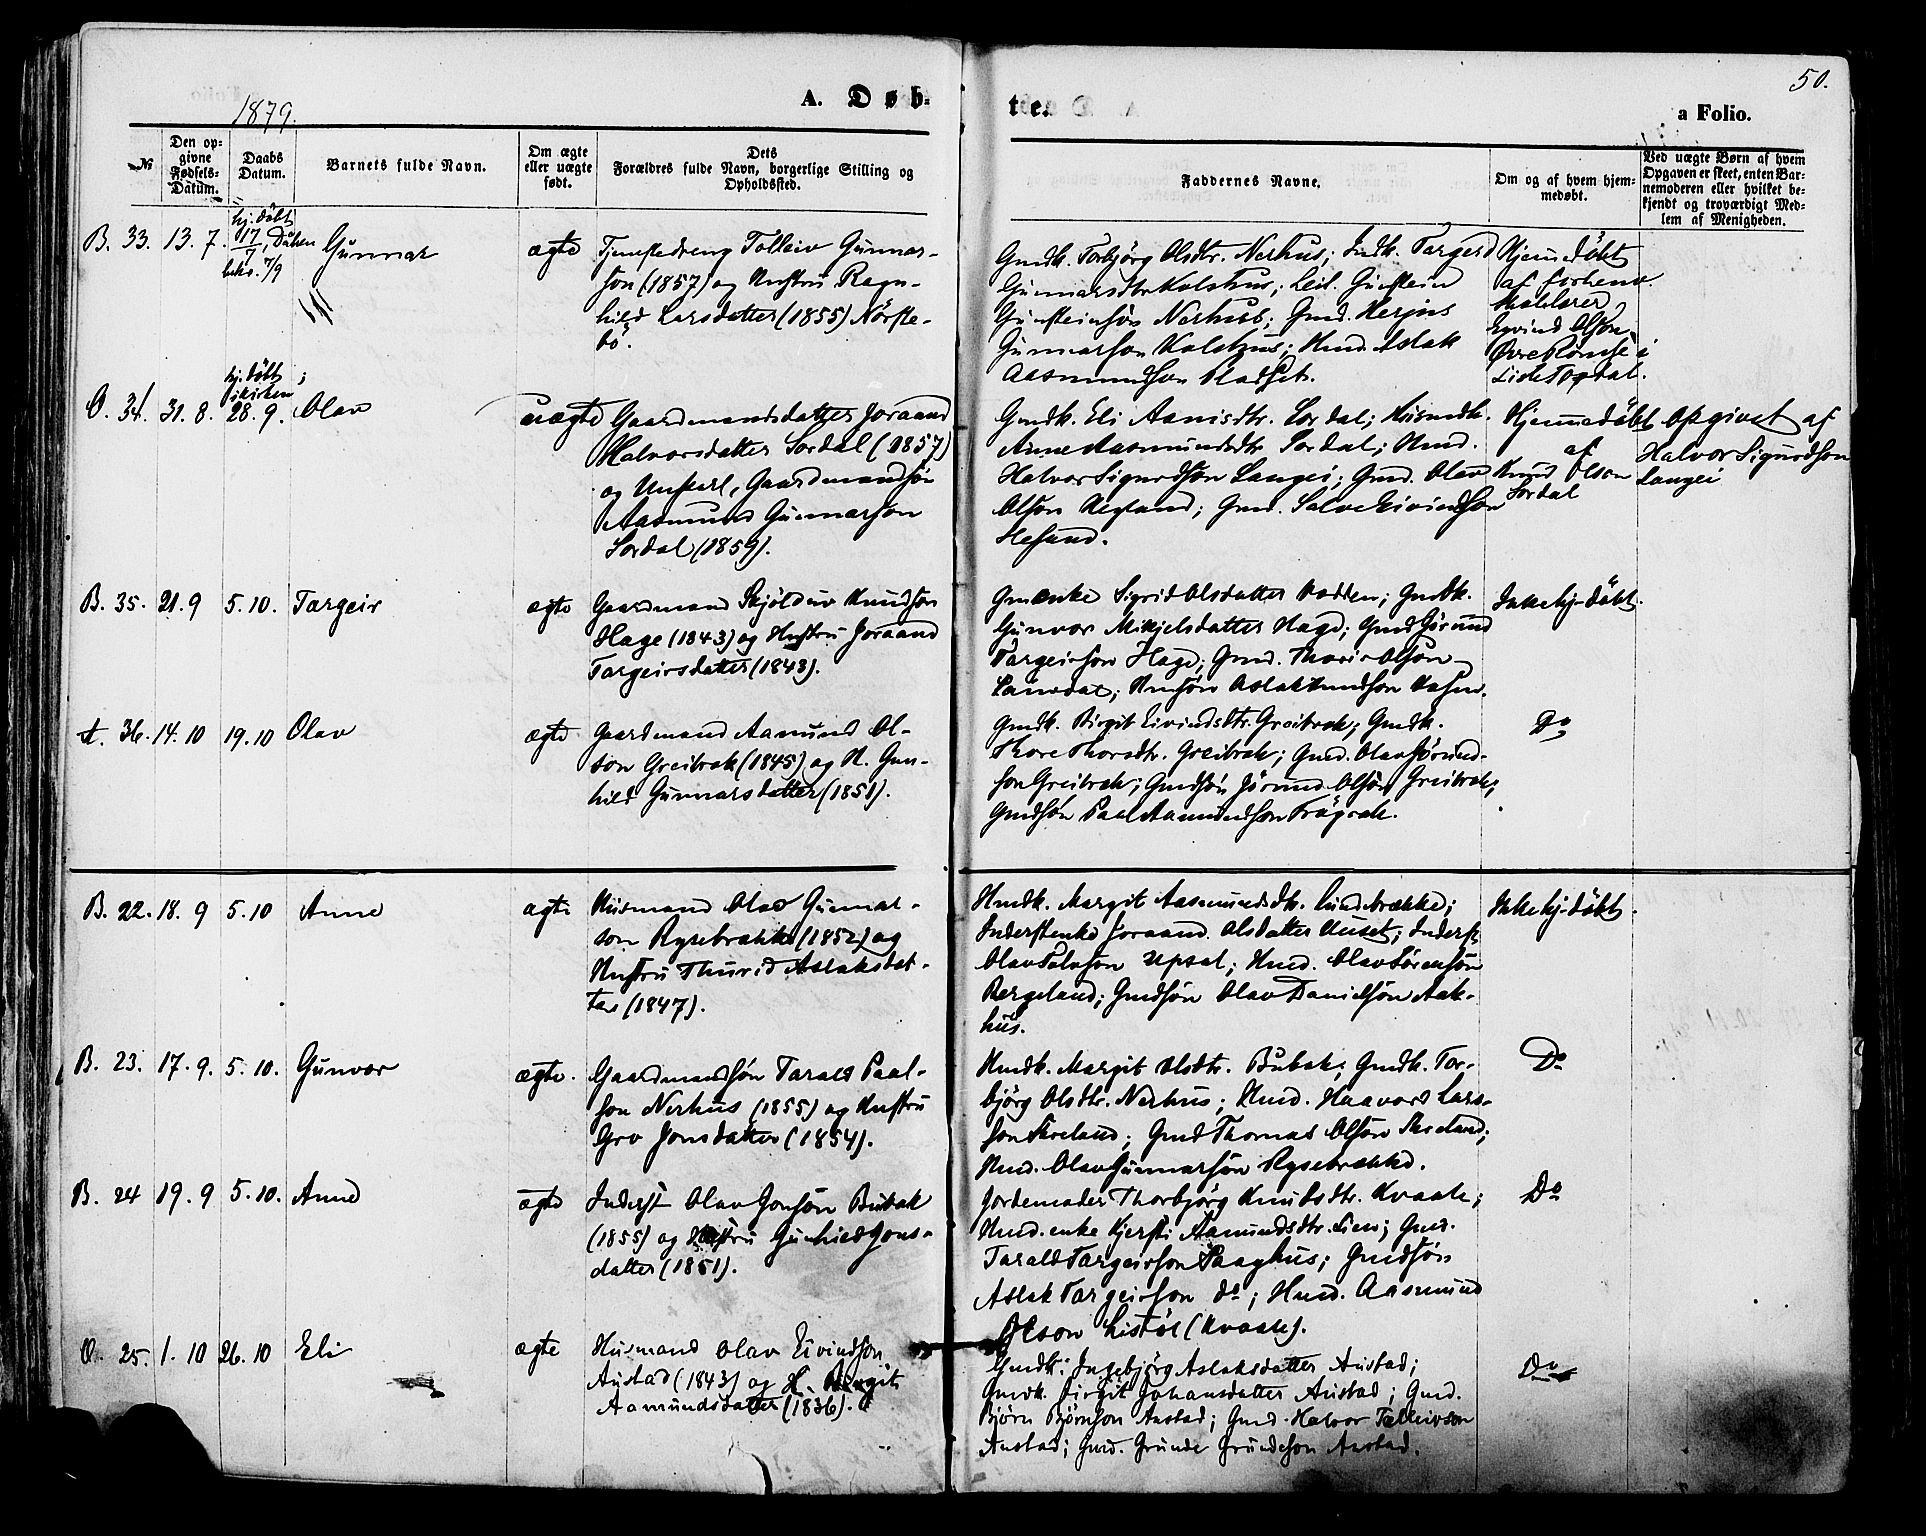 50.
1879.
A. Døb-
te.
a Folio.
№
Den op-
givne
Fødsels-
Datum.
Daabs
Datum.
Barnets fulde Navn.
Om ægte
eller uægte
født.
Dets
Forældres fulde Navn, borgerlige Stilling og
Opholdssted.
Faddernes Navne.
Om og af hvem hjem-
medøbt.
Ved uægte Børn af hvem
Opgaven er skeet, enten Bar-
nemoderen eller hvilket be-
kjendt og troværdigt Med-
lem af Menigheden.
B. 33. 13. 7. hj. döbt
17/7
beks. 7/9
Gunnar
ægte
Tjenestedreng Tolleiv Gunnar-
son (1857) og Hustru Ragn-
hild Larsdatter (1855) Nörste-
bö.
Gmdk. Torbjörg Olsdtr. Nerhus; Indk. Targerd
Gunnarsdtr. Kalshus; Leil. Gunstein
Gunsteinsön Nerhus; Gmd. Herjus
Gunnarson Kalshus; Hmd. Aslak
Aasmundson Pladset.
Hjemmedöbt
af forhenv.
Eyvind Olson
i
O. 34. 31. 8. hj. döbt;
i kirken
28. 9. Olav
uægte
Gaardmandsdatter Joraand
Halvorsdatter Sordal (1857)
og Unkarl, Gaardmandsön
Aasmund Gunnarson
Sordal (1859).
Gmdk. Eli Aanisdtr. Sordal; Husmdk.
Anne Aasmundsdtr. Sordal; Hmd.
Halvor Sigurdsön Langei; Gmd. Olav
Olsön Regland; Gmd. Salve Eivindson
Hjemmedöbt
af
Knud Olson
Sordal
Opgivet af
Halvor Sigurdson
Langei
B. 35. 21. 9 5. 10. Targeir
ægte
Gaardmand Skjöldulv Knudsön
Hage (1843) og Hustru Joraand
Targeirsdatter (1843).
Gmenke Sigrid Olsdatter Hodden; Gmdk.
Gunvor Mikjelsdatter Hage; Gmd Jörund
Targeirson Hage; Gmd. Thorir Olson
Ikke hj-döbt.
A. 36. 14. 10 19. 10 Olav
ægte
Gaardmand Aamund Ol-
son Greibrok (1845) og H. Gun-
hild Gunnarsdatter (1851).
Gmdk. Birgit Eivindsdtr. Greibrok; Gmdk.
Thore Thorsdtr. Greibrok; Gmd. Olav Jörund-
son Greibrok; Gmdsön Jörund Olsön Greibrok;
Gmdsön Paal Aamundson
Do
B. 22. 18. 9 5. 10 Anne
ægte
Husmand Olav Gunnar-
son Rysebrække (1852) og
Hustru Thurid Aslaksdat-
ter (1847).
Hmdk. Margit Aasmundsdtr. Lundebrække;
Inderstenke Joraand Olsdatter Huset; Inderst
Olav Salvson Upsal; Hmd. Olav Sörensön
Bergeland; Gmdsön Olav Danielsön Aak-
hus.
Ikke hj-döbt.
B. 23. 17. 9. 5. 10. Gunvor
ægte.
Gaardmandsön Tarald Paal-
son Nerhus (1855) og Hustru
Gro Jonsdatter (1854).
Hmdk. Margit Olsdtr. Bubak; Gmdk. Tor-
björg Olsdtr. Nerhus; Hmd. Haavord Lars-
son Skreland; Gmd Thomas Olsön Skreland;
Hmd. Olav Gunnarsön Rysebrække.
Do
B. 24 19. 9 5. 10. Anne
ægte
Inderst Olav Jonsön Bubak
(1855) og Hustru Gunhild Jons-
datter (1851).
Jordemoder Thorbjörg Knudsdtr. Kvaale;
Hmd.enke Kjersti Aamundsdtr. Lien; Gmd.
Tarald Targeirson Haaghus; Gmdsön
Aslak Targeirson do; Hmd. Aasmund
Olson Listöl (Kvaale).
Do
O. 25. 1. 10 26. 10 Eli
ægte
Husmand Olav Eivindson
Austad (1843) og H. Birgit
Aamundsdatter (1836).
Gmdk. Ingebjörg Aslaksdatter Austad;
Gmdk. Birgit Johansdatter Austad; Gmd.
Björn Björnson Austad; Gmd. Halvor Tolleivson
Austad; Gmd. Grunde Grundeson Austad.
Do